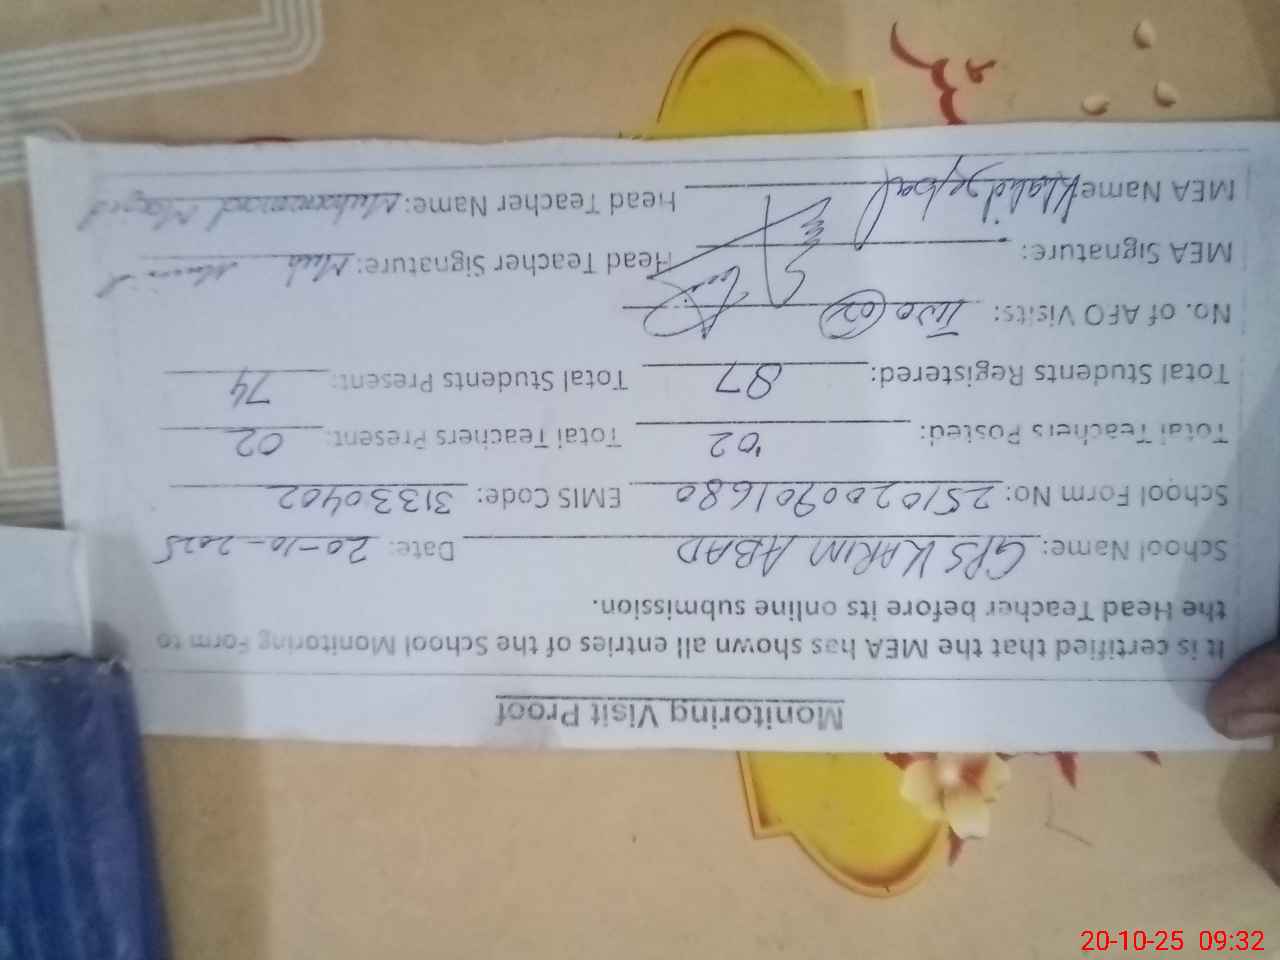 Monitoring Visit Proof
It is certified that the MEA has shown all entries of the School Monitoring Form to
the Head Teacher before its online submission.
School Name: GPS KARIM ABAD Date: 20-10-2025
School Form No: 2510200901680 EMIS Code: 31330402
Total Teachers Posted: 02 Total Teachers Present: 02
Total Students Registered: 87 Total Students Present: 74
No. of AFO Visits: Two (02)
MEA Signature: Head Teacher Signature:
MEA Name Khalid Iqbal Head Teacher Name: Muhammad
20-10-25 09:32